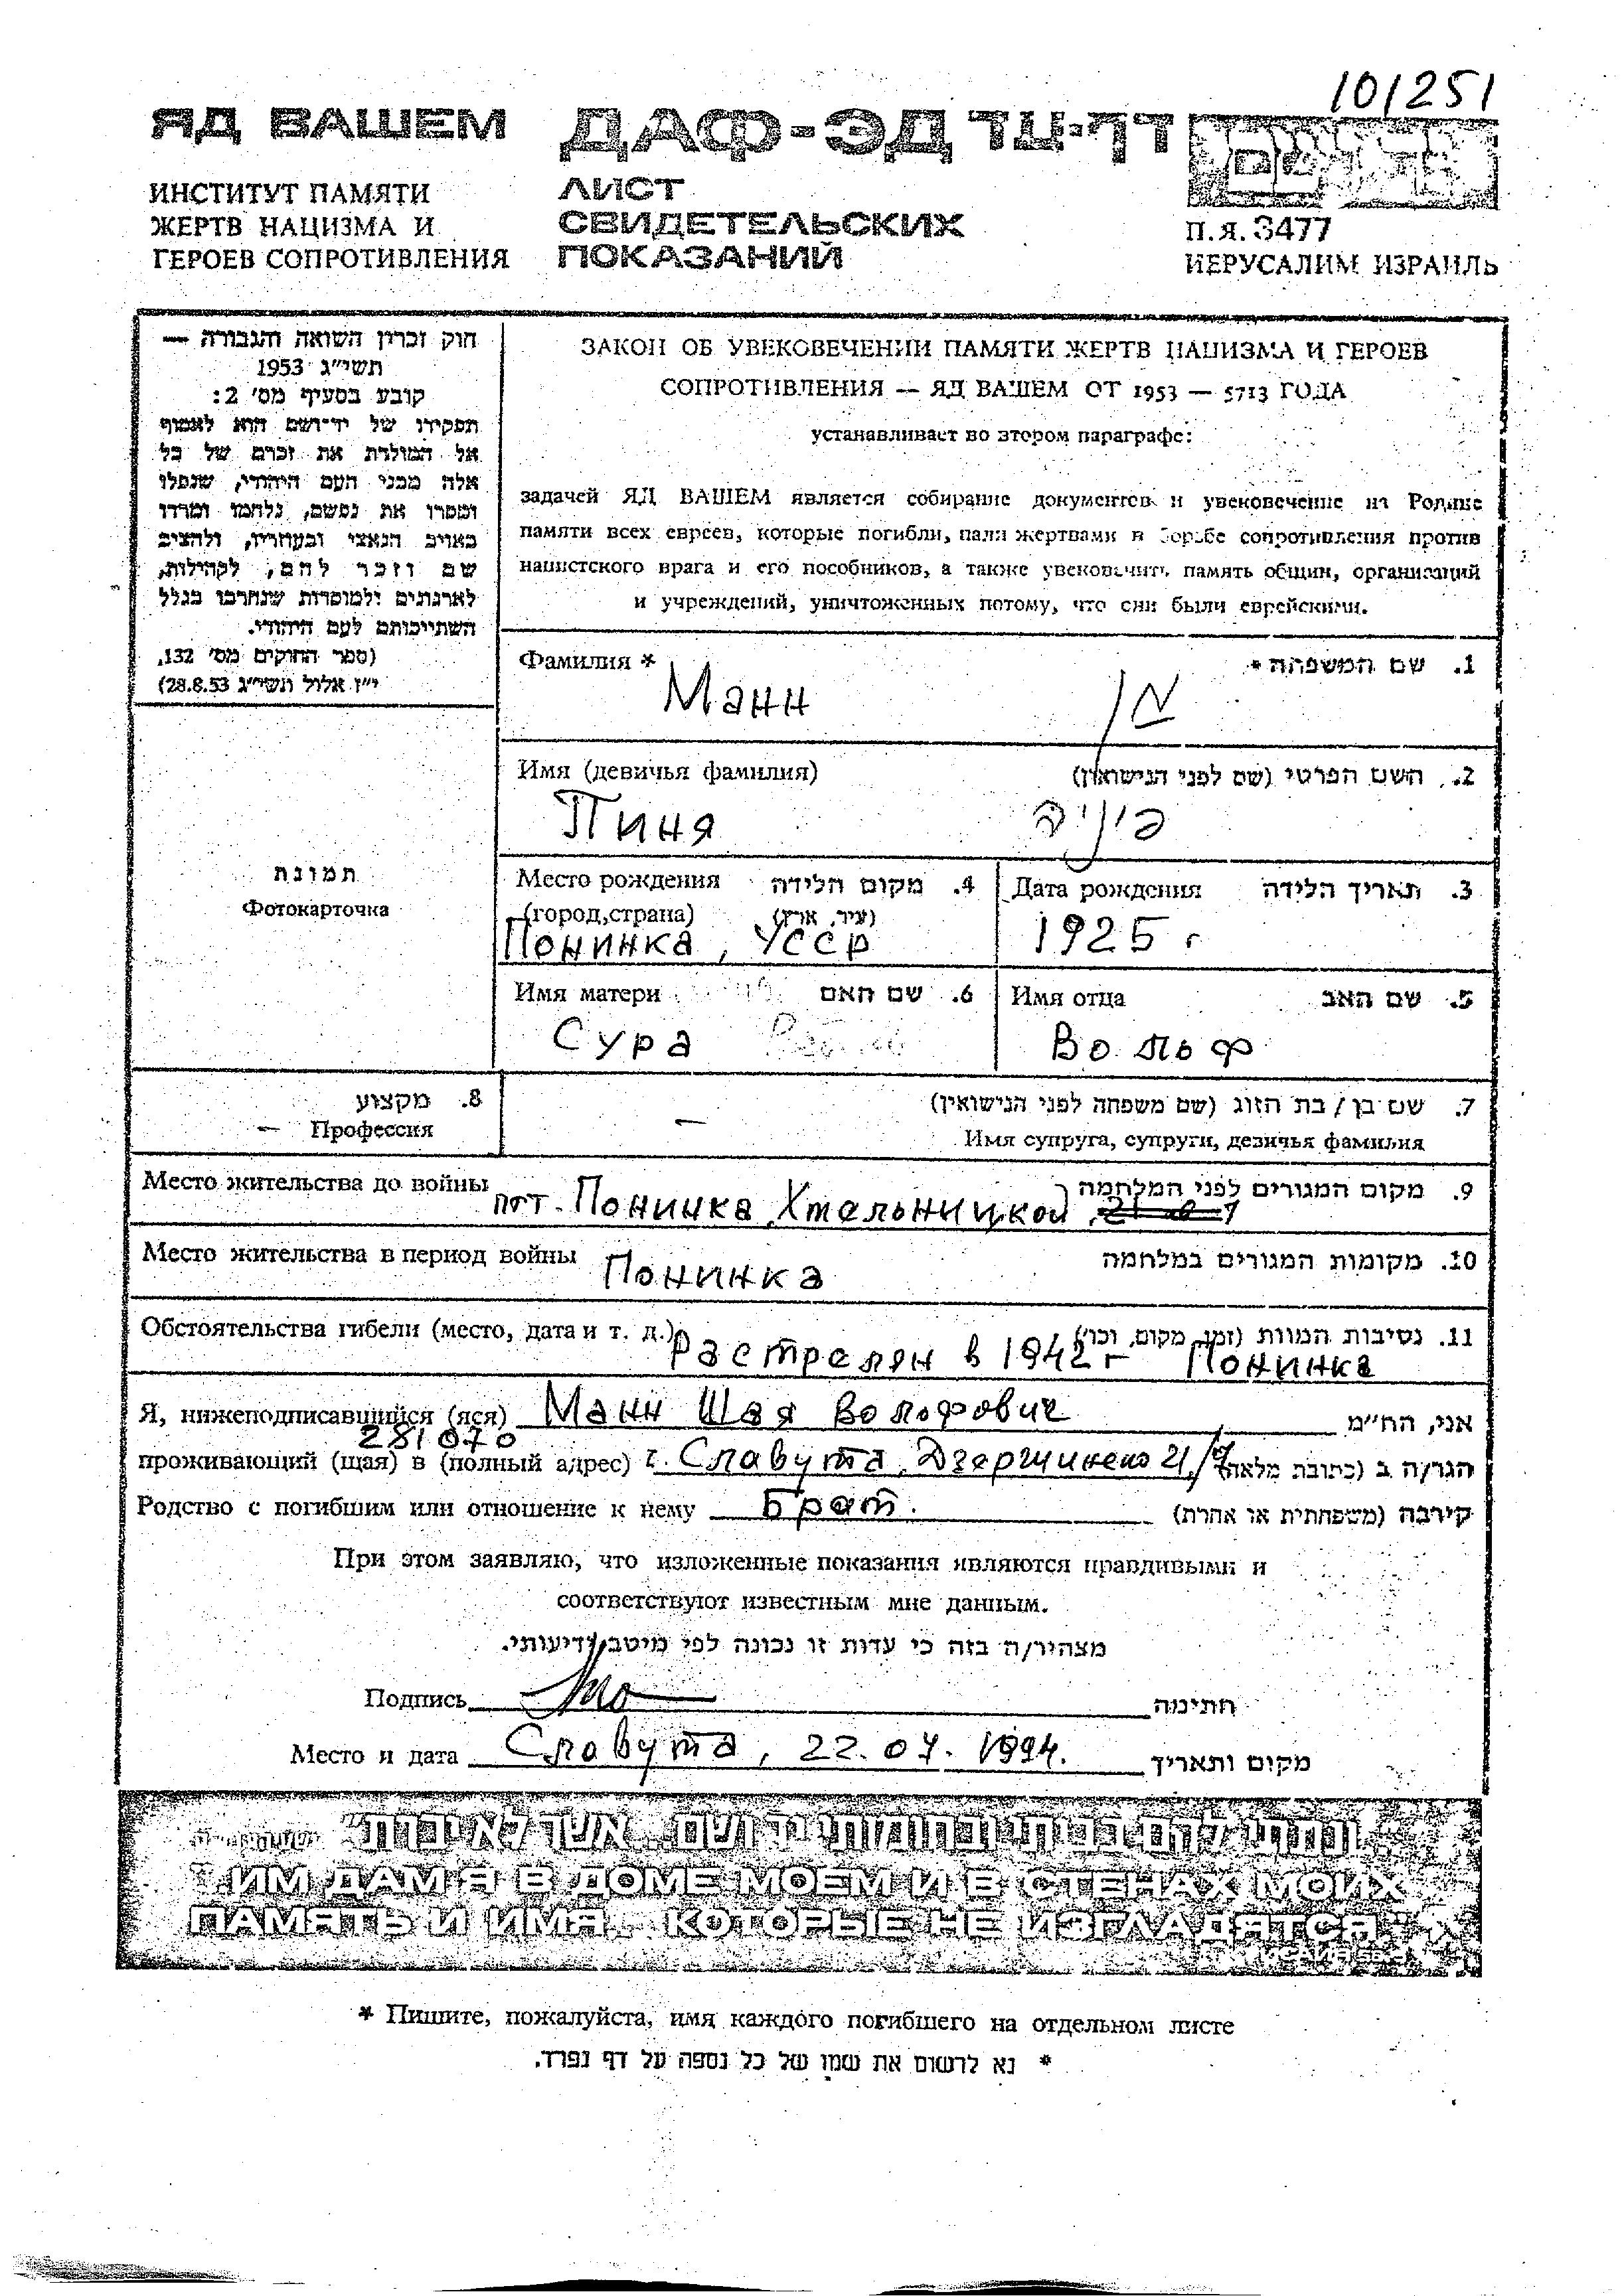 101251
ЯД ВАШЕМ
ИНСТИТУТ ПАМЯТИ
ЖЕРТВ НАЦИЗМА И
ГЕРОЕВ СОПРОТИВЛЕНИЯ
ДАФ-ЭД דף-עד
ЛИСТ
СВИДЕТЕЛЬСКИХ
ПОКАЗАНИЙ
П.Я. 3477
ИЕРУСАЛИМ ИЗРАИЛЬ
חוק זכרון השואה והגבורה —
תשי״ג 1953
קובע בסעיף מס׳ 2:
תפקידו של יד־ושם הוא לאסוף
אל המולדת את זכרם של כל
אלה מבני העם היהודי, שנפלו
ומסרו את נפשם, נלחמו ומרדו
באויב הנאצי ובעוזריו, ולהציב
שם וזכר להם, לקהילות,
לארגונים ולמוסדות שנחרבו בגלל
השתייכותם לעם היהודי.
(ספר החוקים מס׳ 132,
י״ז אלול תשי״ג 28.8.53)
ЗАКОН ОБ УВЕКОВЕЧЕНИИ ПАМЯТИ ЖЕРТВ НАЦИЗМА И ГЕРОЕВ
СОПРОТИВЛЕНИЯ — ЯД ВАШЕМ ОТ 1953 — 5713 ГОДА
устанавливает во втором параграфе:
задачей ЯД ВАШЕМ является собирание документов и увековечение на Родине
памяти всех евреев, которые погибли, пали жертвами в борьбе сопротивления против
нацистского врага и его пособников, а также увековечить память общин, организаций
и учреждений, уничтоженных потому, что они были еврейскими.
Фамилия * 1. שם המשפחה *
Манн מן
Имя (девичья фамилия) 2. השם הפרטי (שם לפני הנישואין)
Пиня פיניה
Место рождения 4. מקום הלידה
(город,страна) (עיר, ארץ)
Понинка, УССР
Дата рождения 3. תאריך הלידה
1925 г
Имя матери 6. שם האם
Сура
Имя отца 5. שם האב
Вольф
תמונת
Фотокарточка
8. מקצוע
Профессия —
7. שם בן / בת הזוג (שם משפחה לפני הנישואין)
— Имя супруга, супруги, девичья фамилия
Место жительства до войны 9. מקום המגורים לפני המלחמה
пгт. Понинка, Хмельницкой
Место жительства в период войны 10. מקומות המגורים במלחמה
Понинка
Обстоятельства гибели (место, дата и т. д.) 11. נסיבות המוות (זמן, מקום, וכו׳)
Растрелян в 1942 г Понинка
Я, нижеподписавшийся (яся) Манн Шая Вольфович אני, הח״מ
281070
проживающий (щая) в (полный адрес) г. Славута, Дзержинско 21/7 הגר/ה ב (כתובת מלאה)
Родство с погибшим или отношение к нему Брат. קירבה (משפחתית או אחרת)
При этом заявляю, что изложенные показания являются правдивыми и
соответствуют известным мне данным.
מצהיר/ה בזה כי עדות זו נכונה לפי מיטב ידיעותי.
Подпись חתימה
Место и дата Славута, 22.07.1994. מקום ותאריך
ונתתי להם בביתי ובחומותי יד ושם... אשר לא יכרת״
"ИМ ДАМ Я В ДОМЕ МОЕМ И В СТЕНАХ МОИХ
ПАМЯТЬ И ИМЯ... КОТОРЫЕ НЕ ИЗГЛАДЯТСЯ."
* Пишите, пожалуйста, имя каждого погибшего на отдельном листе
* נא לרשום את שמו של כל נספה על דף נפרד.